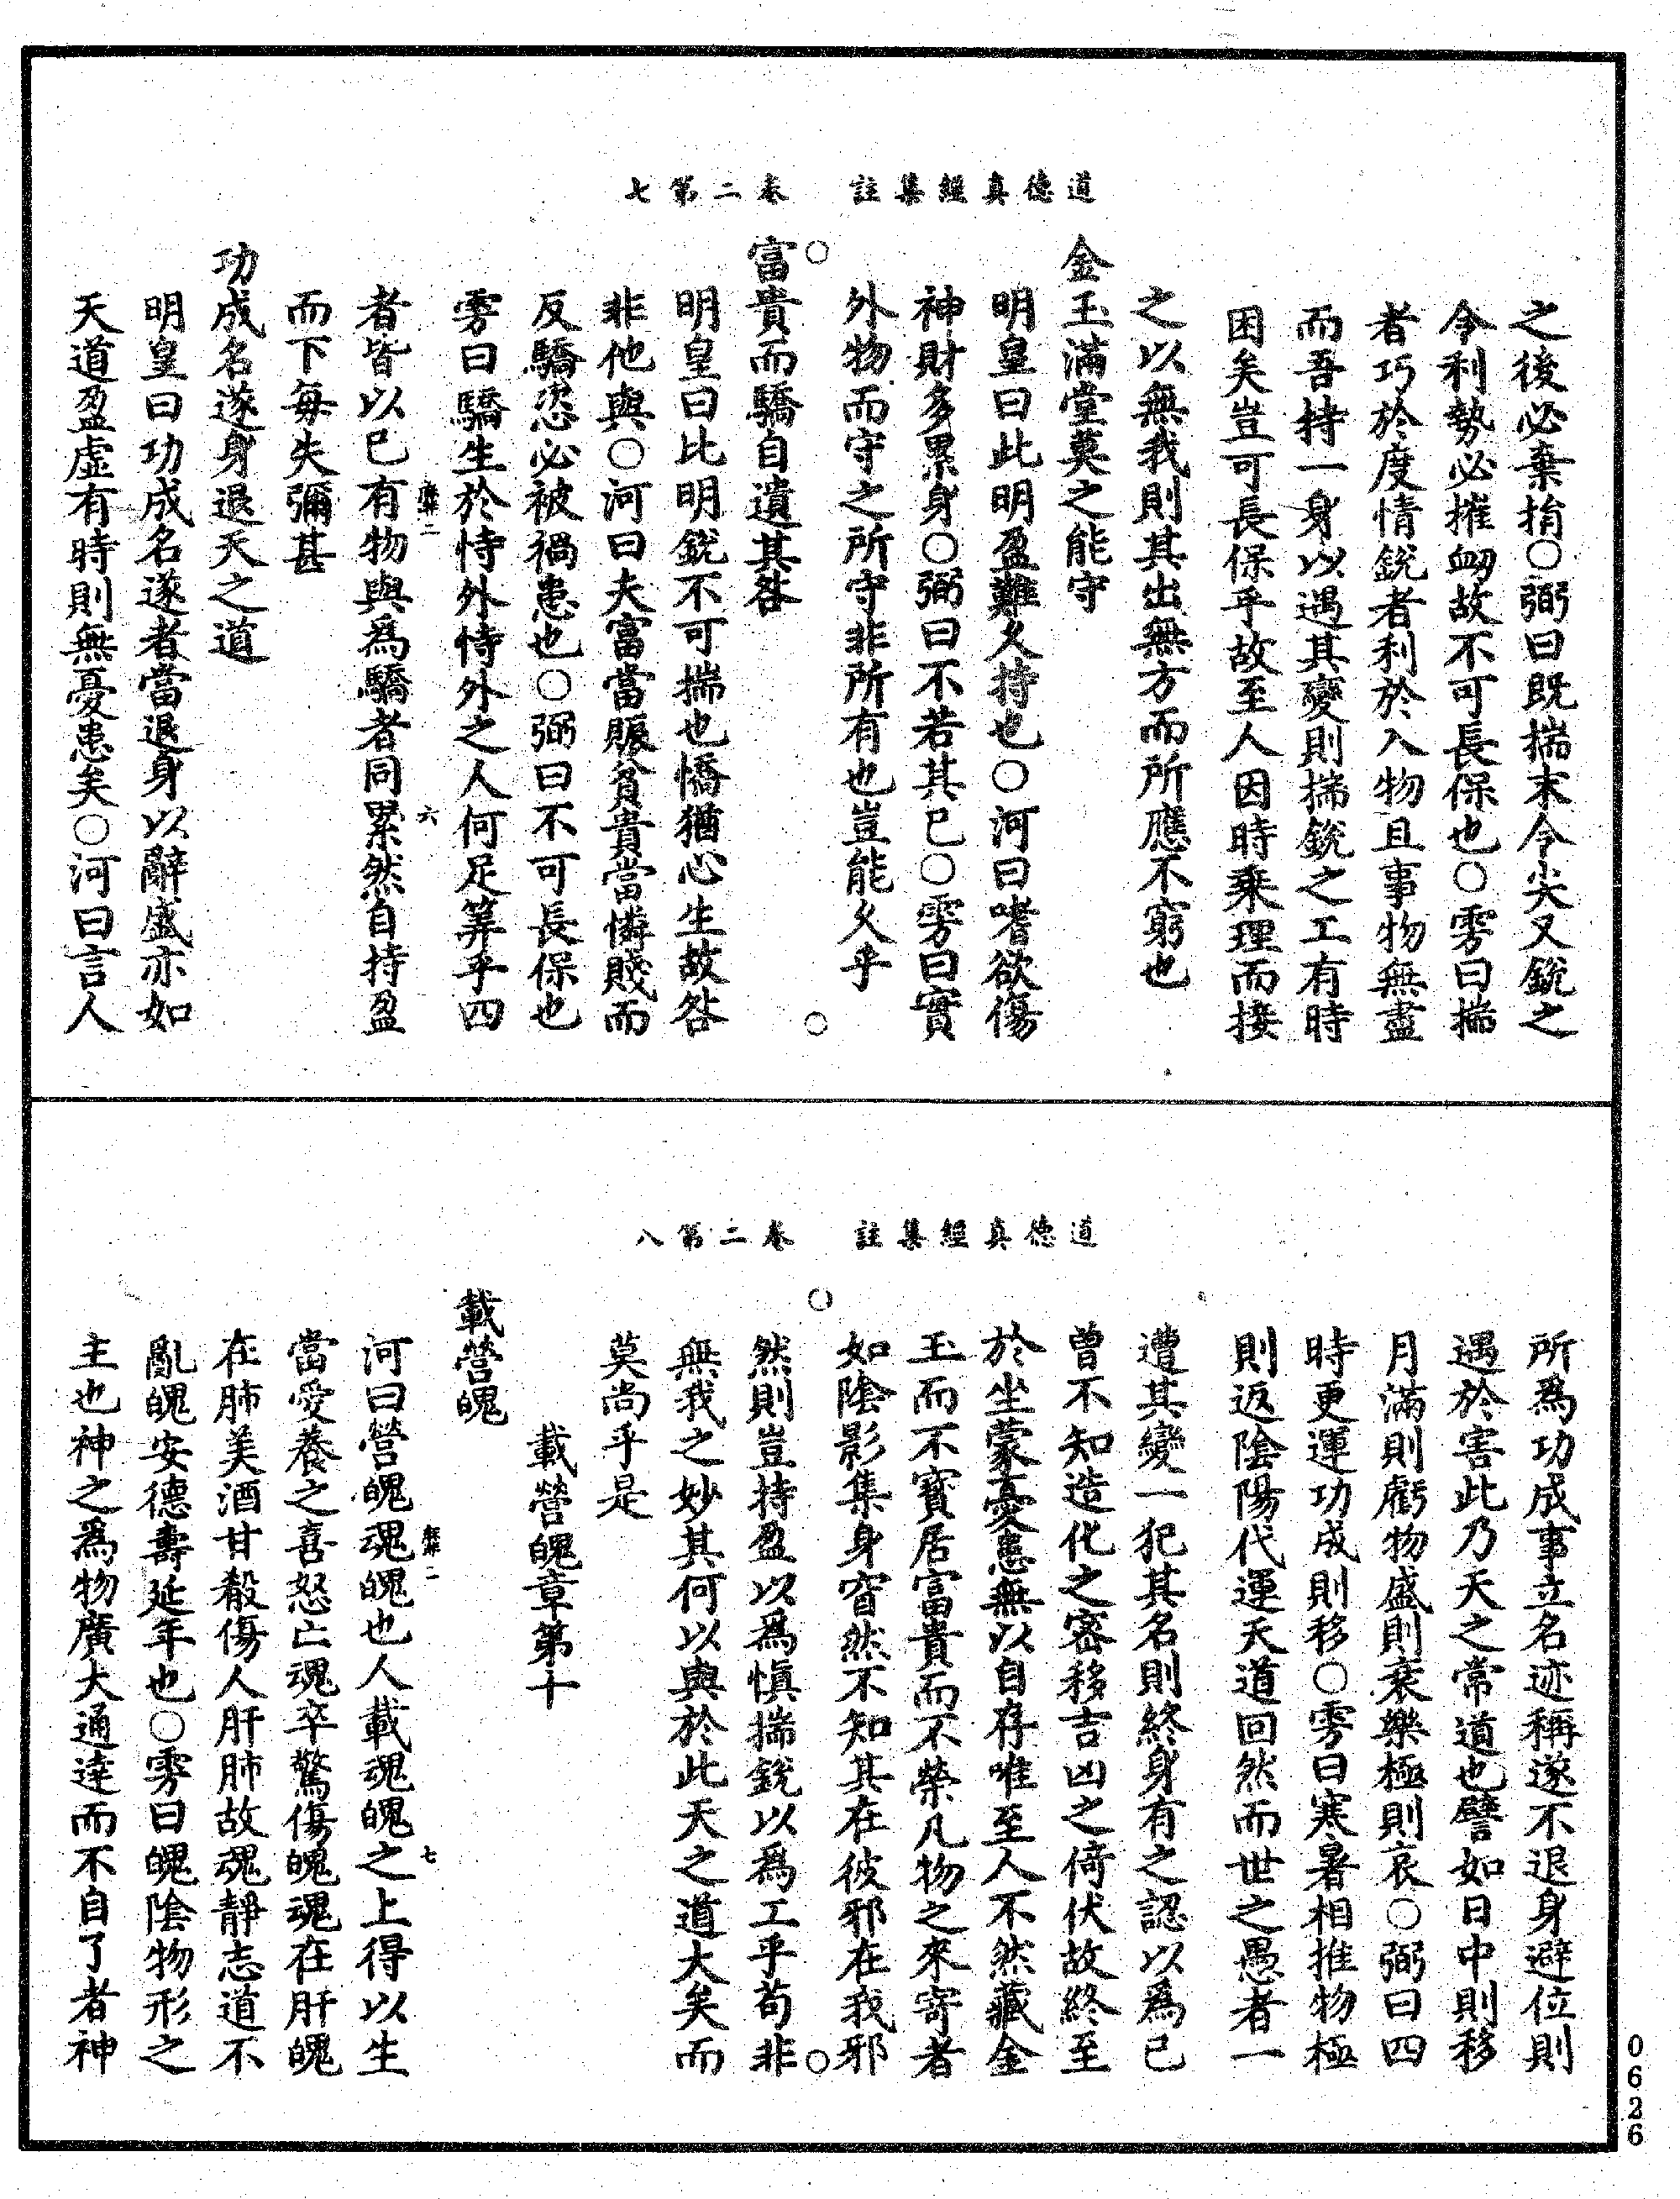 道德真經集註　卷二第七
之後必棄捐○弼曰既揣末令尖又銳之
令利勢必摧衂故不可長保也○雱曰揣
者巧於度情銳者利於入物且事物無盡
而吾持一身以遇其變則揣銳之工有時
困矣豈可長保乎故至人因時乘理而接
之以無我則其出無方而所應不窮也
金玉滿堂莫之能守
明皇曰此明盈難久持也○河曰嗜欲傷
神財多累身○弼曰不若其已○雱曰實
外物而守之所守非所有也豈能久乎
富貴而驕自遺其咎
明皇曰比明銳不可揣也憍猶心生故咎
非他與○河曰夫富當賑貧貴當憐賤而
反驕恣必被禍患也○弼曰不可長保也
雱曰驕生於恃外恃外之人何足筭乎四
者皆以已有物與爲驕者同累然自持盈
而下每失彌甚
功成名遂身退天之道
明皇曰功成名遂者當退身以辭盛亦如
天道盈虛有時則無憂患矣○河曰言人
道德真經集註　卷二第八
所爲功成事立名迹稱遂不退身避位則
遇於害此乃天之常道也譬如日中則移
月滿則虧物盛則衰樂極則哀○弼曰四
時更運功成則移○雱曰寒暑相推物極
則返陰陽代運天道回然而世之愚者一
遭其變一犯其名則終身有之認以爲已
曾不知造化之密移吉凶之倚伏故終至
於坐蒙憂患無以自存唯至人不然藏金
玉而不寶居富貴而不榮凡物之來寄者
如陰影集身窅然不知其在彼邪在我邪
然則豈持盈以爲愼揣銳以爲工乎苟非
無我之妙其何以與於此天之道大矣而
莫尚乎是
載營魄章第十
載營魄
河曰營魄魂魄也人載魂魄之上得以生
當愛養之喜怒亡魂卒驚傷魄魂在肝魄
在肺美酒甘殽傷人肝肺故魂靜志道不
亂魄安德壽延年也○雱曰魄陰物形之
主也神之爲物廣大通達而不自了者神
0626